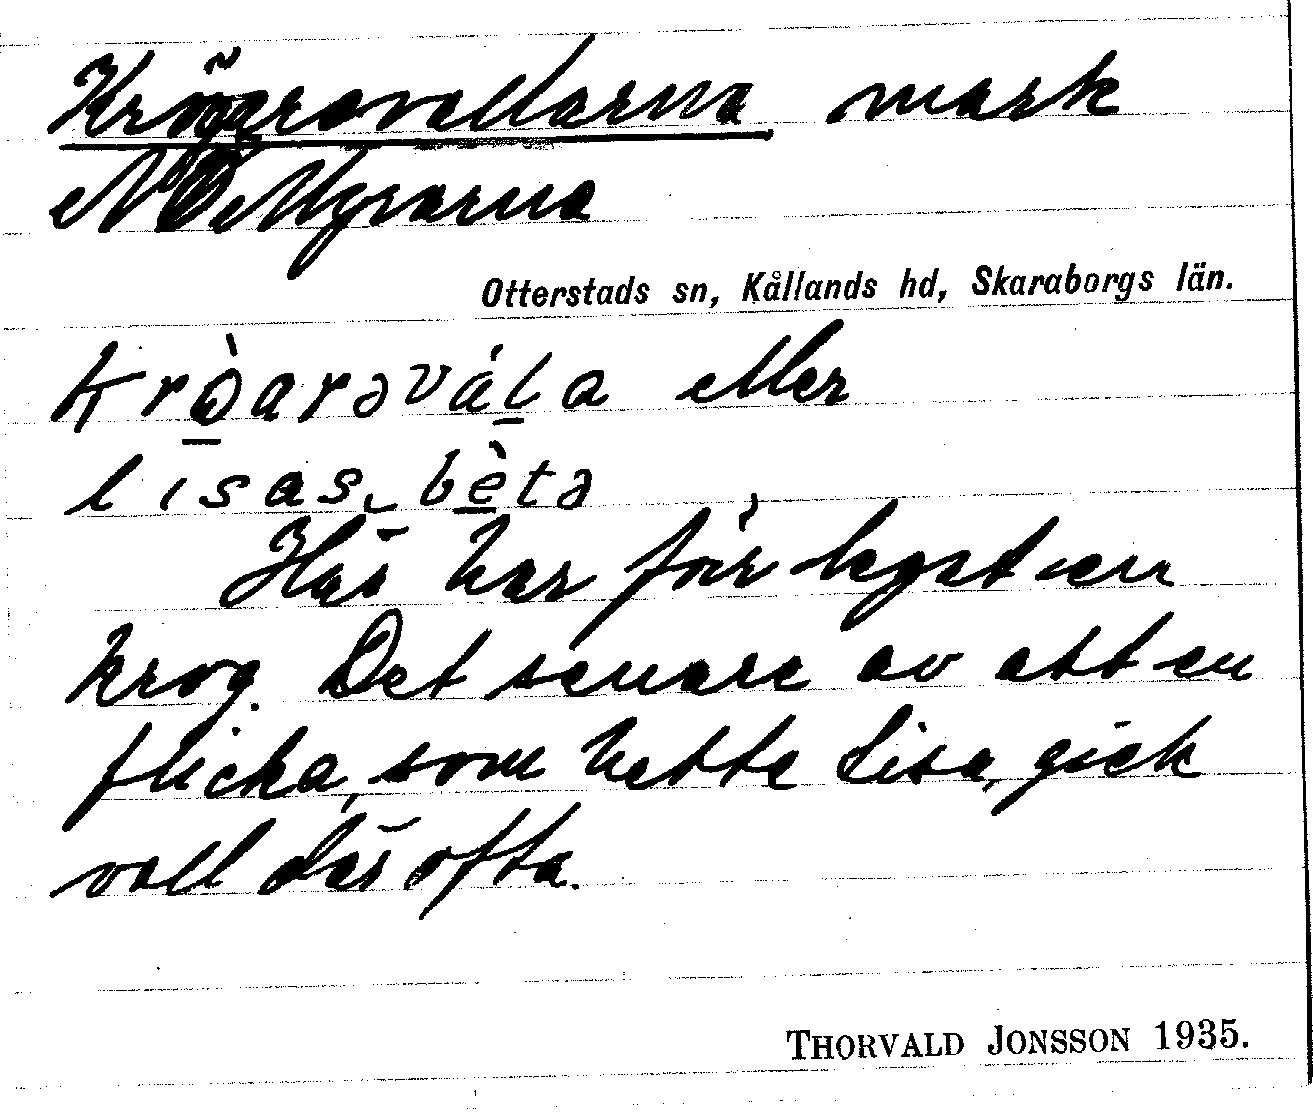 Krögarevallarna mark
NO Myrarna
Otterstads sn, Kållands hd, Skaraborgs län.
eller
Här har förr legat en
krog. Det senare av att en
flicka, som hette Lisa, gick
vall där ofta.
THORVALD JONSSON 1935.